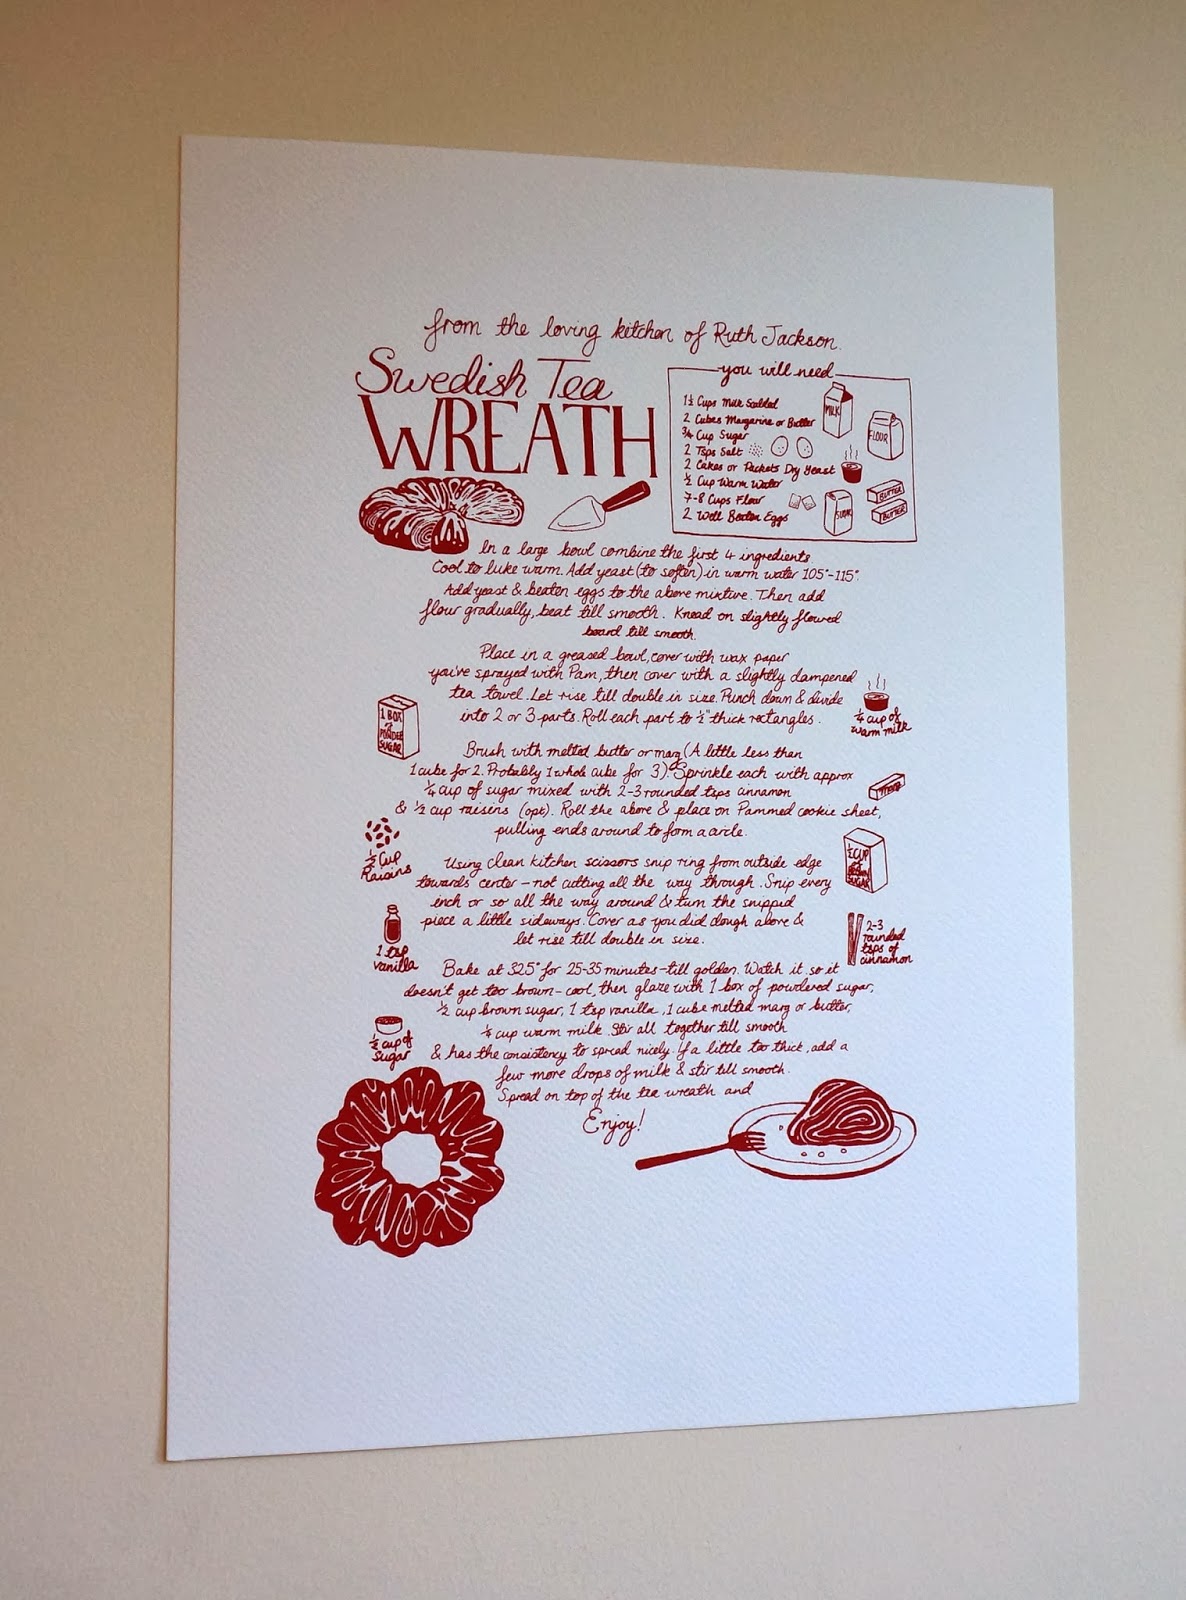 from the loving kitchen of Ruth Jackson.
Swedish Tea
WREATH
you will need
1½ Cups Milk Scalded
2 Cubes Margarine or Butter
¾ Cup Sugar
2 Tsps Salt
2 Cakes or Packets Dry Yeast
½ Cup Warm Water
7-8 Cups Flour
2 Well Beaten Eggs
MILK
FLOUR
SUGAR
BUTTER
BUTTER
In a large bowl combine the first 4 ingredients.
Cool to luke warm. Add yeast (to soften) in warm water 105°-115°.
Add yeast & beaten eggs to the above mixture. Then add
flour gradually, beat till smooth. Knead on slightly floured
board till smooth.
Place in a greased bowl, cover with wax paper
you've sprayed with Pam, then cover with a slightly dampened
tea towel. Let rise till double in size. Punch down & divide
into 2 or 3 parts. Roll each part to ½" thick rectangles.
¼ cup of
warm milk
1 BOX
of
POWDER
SUGAR
Brush with melted butter or marg (A little less than
1 cube for 2. Probably 1 whole cube for 3). Sprinkle each with approx
¼ cup of sugar mixed with 2-3 rounded tsps cinnamon
& ½ cup raisens (opt). Roll the above & place on Pammed cookie sheet,
pulling ends around to form a circle.
marg
½ Cup
Raisins
Using clean kitchen scissors snip ring from outside edge
towards center - not cutting all the way through. Snip every
inch or so all the way around & turn the snipped
piece a little sideways. Cover as you did dough above &
let rise till double in size.
½ CUP
of
BROWN
SUGAR
1 tsp
vanilla
2-3
rounded
tsps of
cinnamon
Bake at 325° for 25-35 minutes - till golden. Watch it so it
doesn't get too brown - cool, then glaze with 1 box of powdered sugar,
½ cup brown sugar, 1 tsp vanilla, 1 cube melted marg or butter,
¼ cup warm milk. Stir all together till smooth
& has the consistency to spread nicely. If a little too thick, add a
few more drops of milk & stir till smooth.
Spread on top of the tea wreath and
Enjoy!
½ cup of
sugar